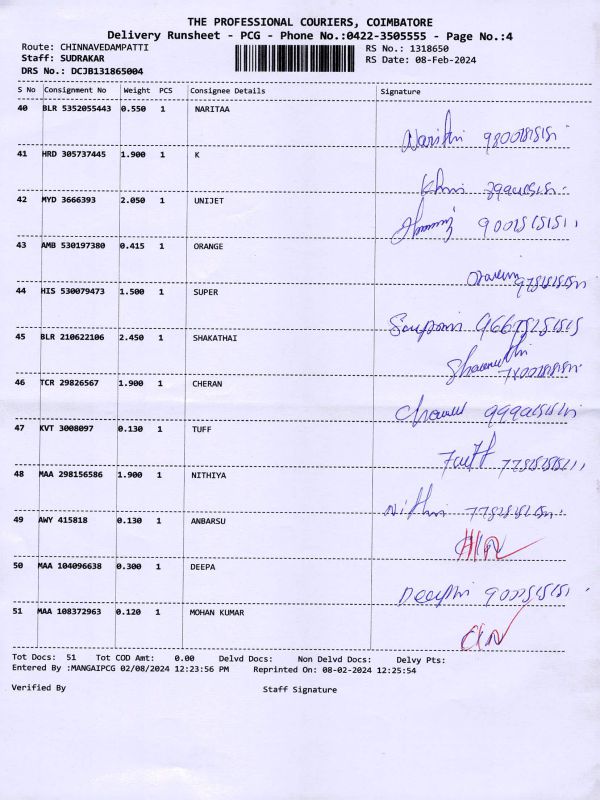 THE PROFESSIONAL COURIERS, COIMBATORE
Delivery Runsheet - PCG - Phone No.:0422-3505555 - Page No.:4
Route: CHINNAVEDAMPATTI RS No.: 1318650
Staff: SUDRAKAR RS Date: 08-Feb-2024
DRS No.: DCJB131865004
S No Consignment No Weight PCS Consignee Details Signature
40 BLR 5352055443 0.550 1 NARITAA
41 HRD 305737445 1.900 1 K
42 MYD 3666393 2.050 1 UNIJET
43 AMB 530197380 0.415 1 ORANGE
44 HIS 530079473 1.500 1 SUPER
45 BLR 210622106 2.450 1 SHAKATHAI
46 TCR 29826567 1.900 1 CHERAN
47 KVT 3008097 0.130 1 TUFF
48 MAA 298156586 1.900 1 NITHIYA
49 AWY 415818 0.130 1 ANBARSU
50 MAA 104096638 0.300 1 DEEPA
51 MAA 108372963 0.120 1 MOHAN KUMAR
Tot Docs: 51 Tot COD Amt: 0.00 Delvd Docs: Non Delvd Docs: Delvy Pts:
Entered By :MANGAIPCG 02/08/2024 12:23:56 PM Reprinted On: 08-02-2024 12:25:54
Verified By Staff Signature